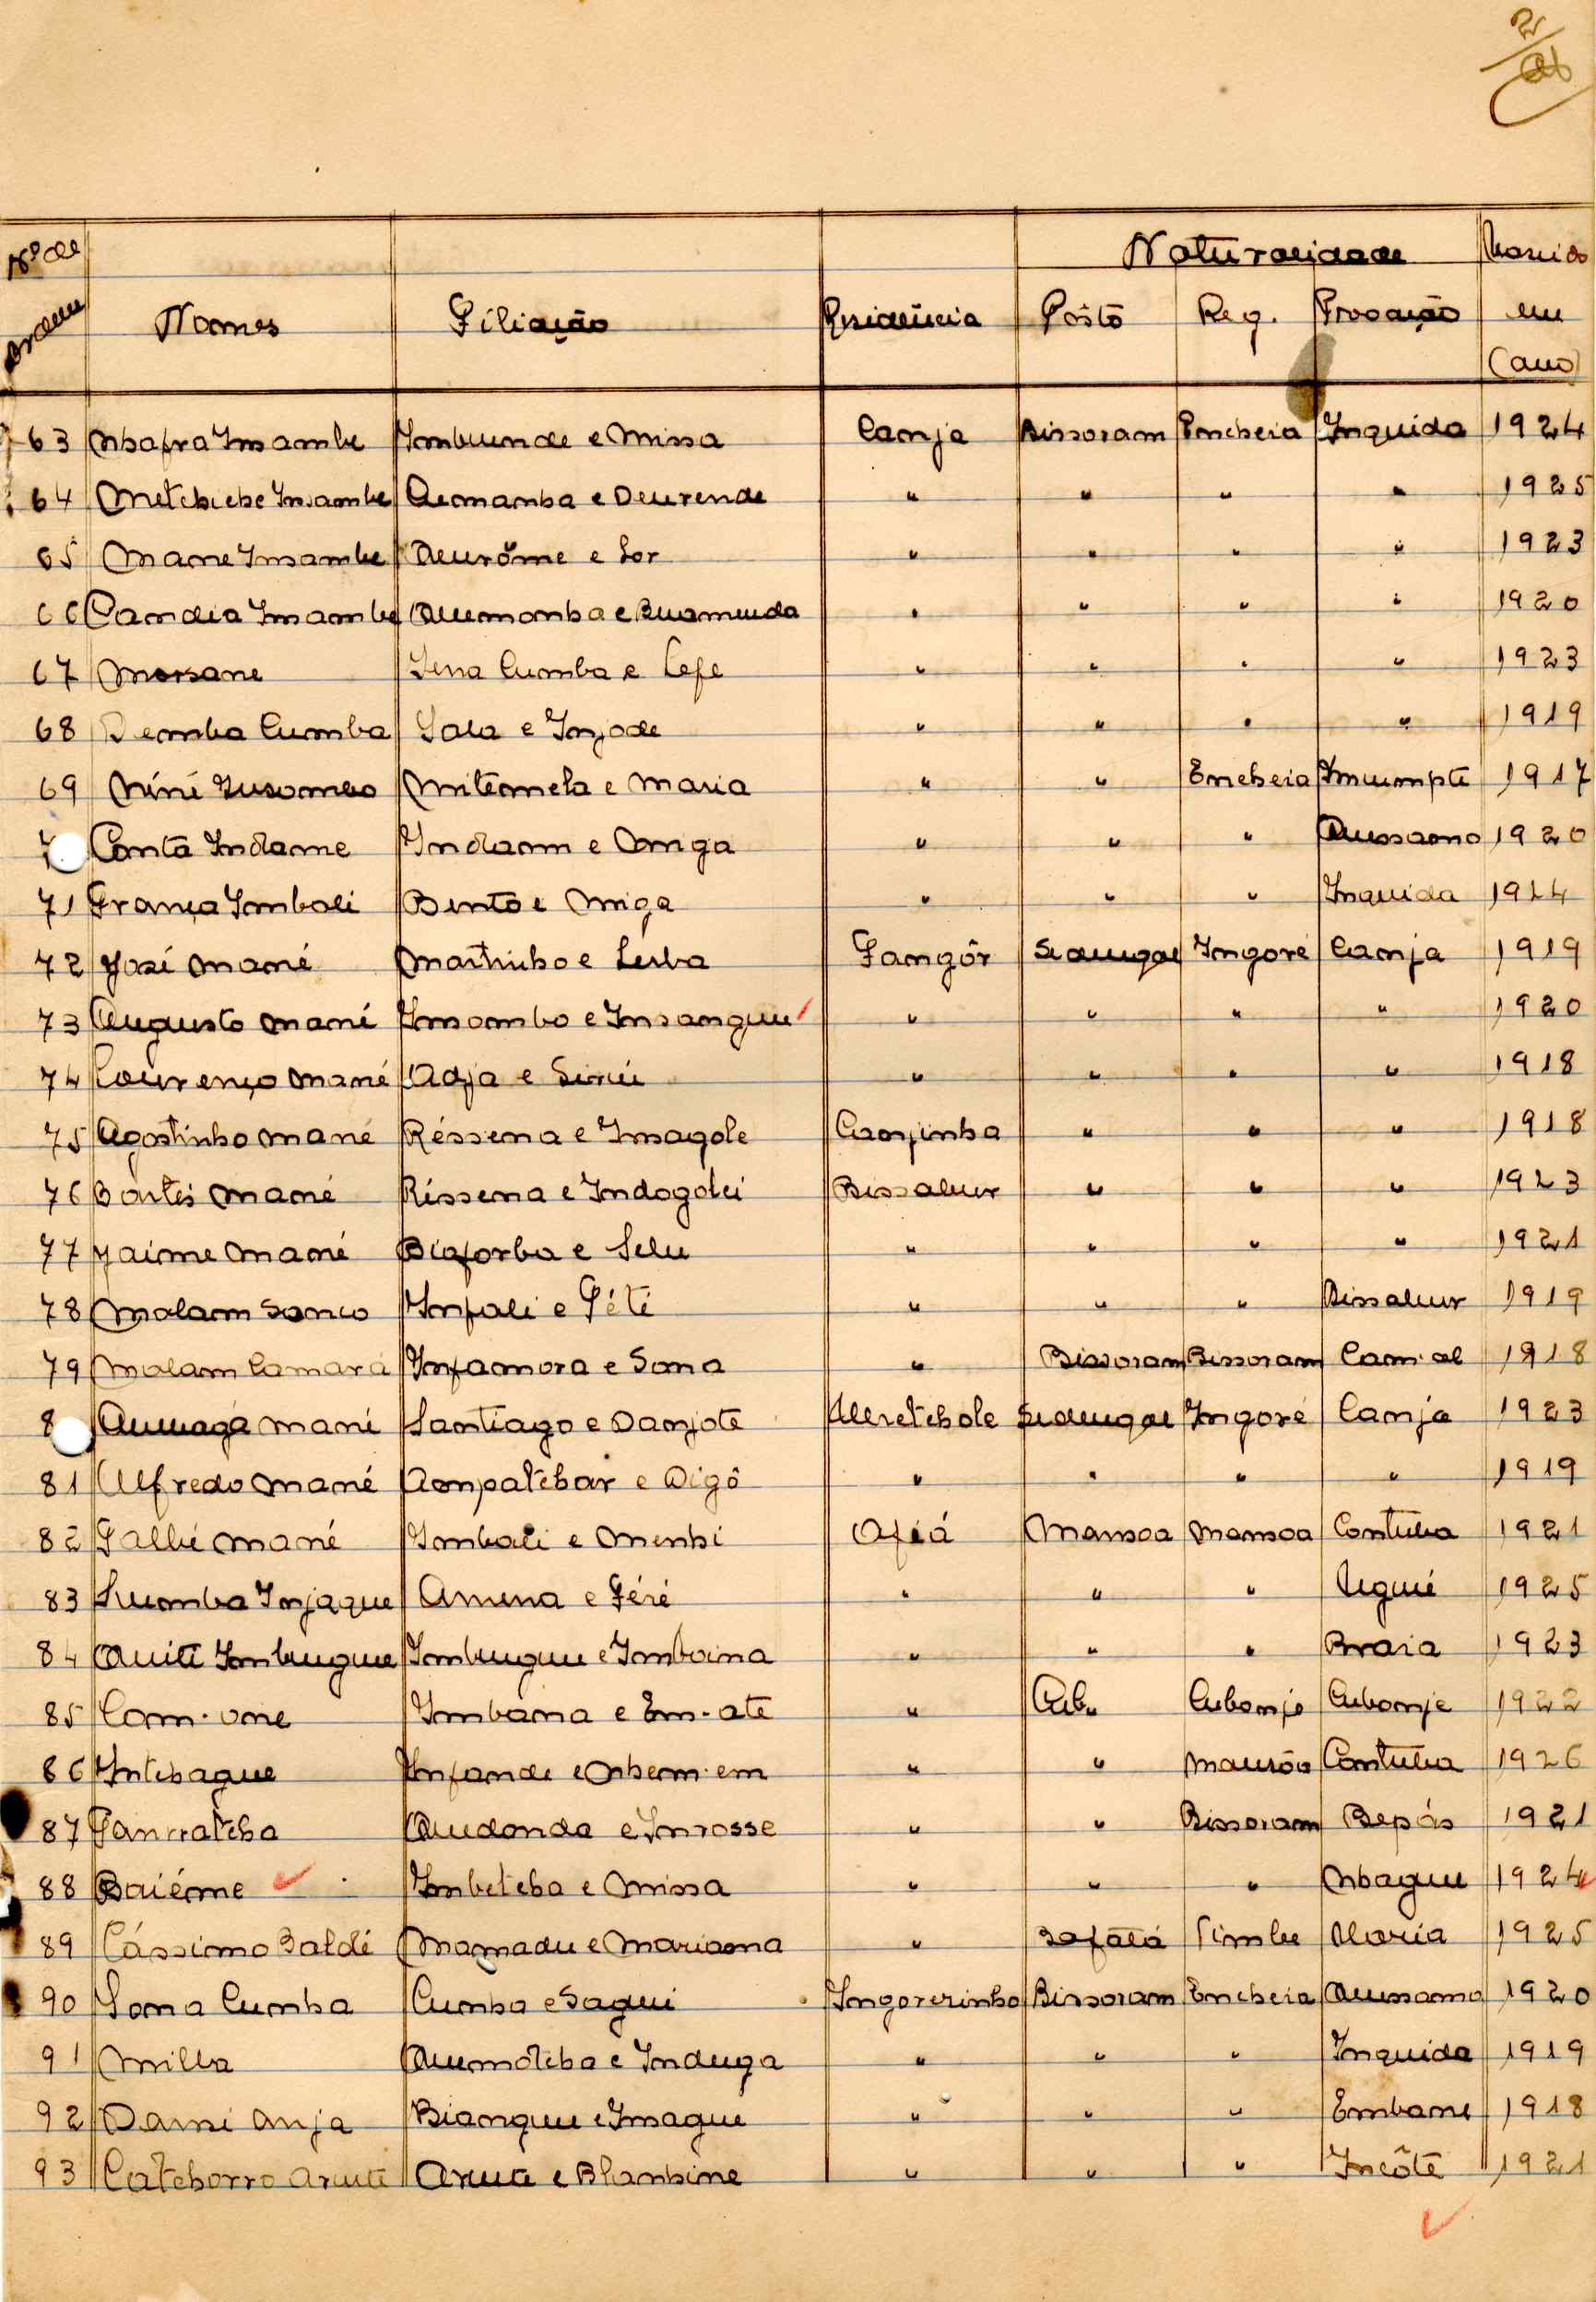 2
Naturalidade Nascido
Nº de
ordem Nomes Filiação Residência Pôsto Reg. Povoação em
(ano)
63 Nhafra Insambe Imbunde e Missa Canja Bissoram Encheia Inquida 1924
64 Metchiche Insambe e Deurende " " " " 1925
65 Mane Insambe Queurôme e Sor " " " " 1923
66 Candia Insambe Quemonha e " " " " 1920
67 Morsane Iena Cumba e Cefe " " " " 1923
68 Demba Cumba Sala e Injode " " " " 1919
69 Níní Insombo e Maria " " Encheia 1917
Conta Indame Indam e Onga " " " Qussamo 1920
71 França Imbali Bento e Miga " " " Inquida 1924
72 José Mané Martinho e Fangôr Sedengal Ingoré Canja 1919
73 Augusto Mané Insombo e Insangue " " " " 1920
74 Lourenço Mané Adja e " " " " 1918
75 Agostinho Mané Réssena e Insagole Canjinha " " " 1918
76 Mané Réssena e Indogolei Bissalur " " " 1923
77 Jaime Mané Biaforba e Selu " " " " 1921
78 Malam Sanco Infali e Fété " " " Bissalur 1919
79 Malam Camará Infamora e Sona " Bissoram Bissoram 1918
8 Mané Santiago e Danjote Uretchole Sedengal Ingoré Canja 1923
81 Alfredo Mané Ampatchar e Digô " " " " 1919
82 Mané Imbali e Menhi Afiá Mansoa Mansoa Contuba 1921
83 Injaque Amena e Féré " " " Uguié 1925
84 Quiti Imbugue Imbugue e Imbaina " " " Braia 1923
85 Com-one Imbana e Em-ate " " Cubonje Cubonje 1922
86 Intchague Infande e Nhem-em " " Mansôa Contuba 1926
87 Fanrratcha Qudonda e Inrosse " " Bissoram Bepás 1921
88 Baiéme Imbetcha e Missa " " " Nhague 1924
89 Cássimo Baldé Mamadu e Mariama " Bafatá 1925
90 Sona Cumba Cumba e Sagui Ingorezinho Bissoram Encheia Qussamo 1920
91 Milla Qumotcha e Induga " " " Inquida 1919
92 Dansi Anja Biangue e Imague " " " Embane 1918
93 Catchorro Arute Arute e Blanhine " " " Incôte 1921